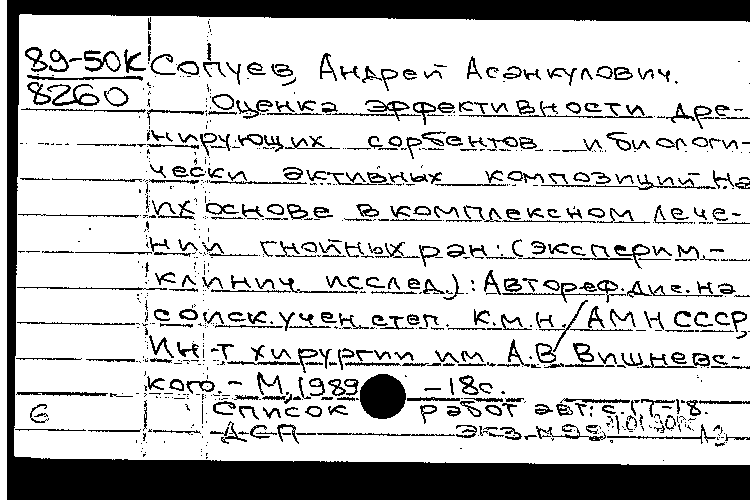 89-50К Сопуев, Андрей Асанкулович.
8260 Оценка эффективности дре-
нирующих сорбентов и биологи-
чески активных композиций на
их основе в комплексном лече-
нии гнойных ран: (эксперим.-
клинич. исслед.): Автореф. дис. на
соиск. учен. степ. к.м.н. / АМН СССР,
Ин-т хирургии им. А.В Вишневс-
кого. - М, 1989 - 18с.
Список работ авт.: с. 17-18.
6 ДСП экз. N 99.